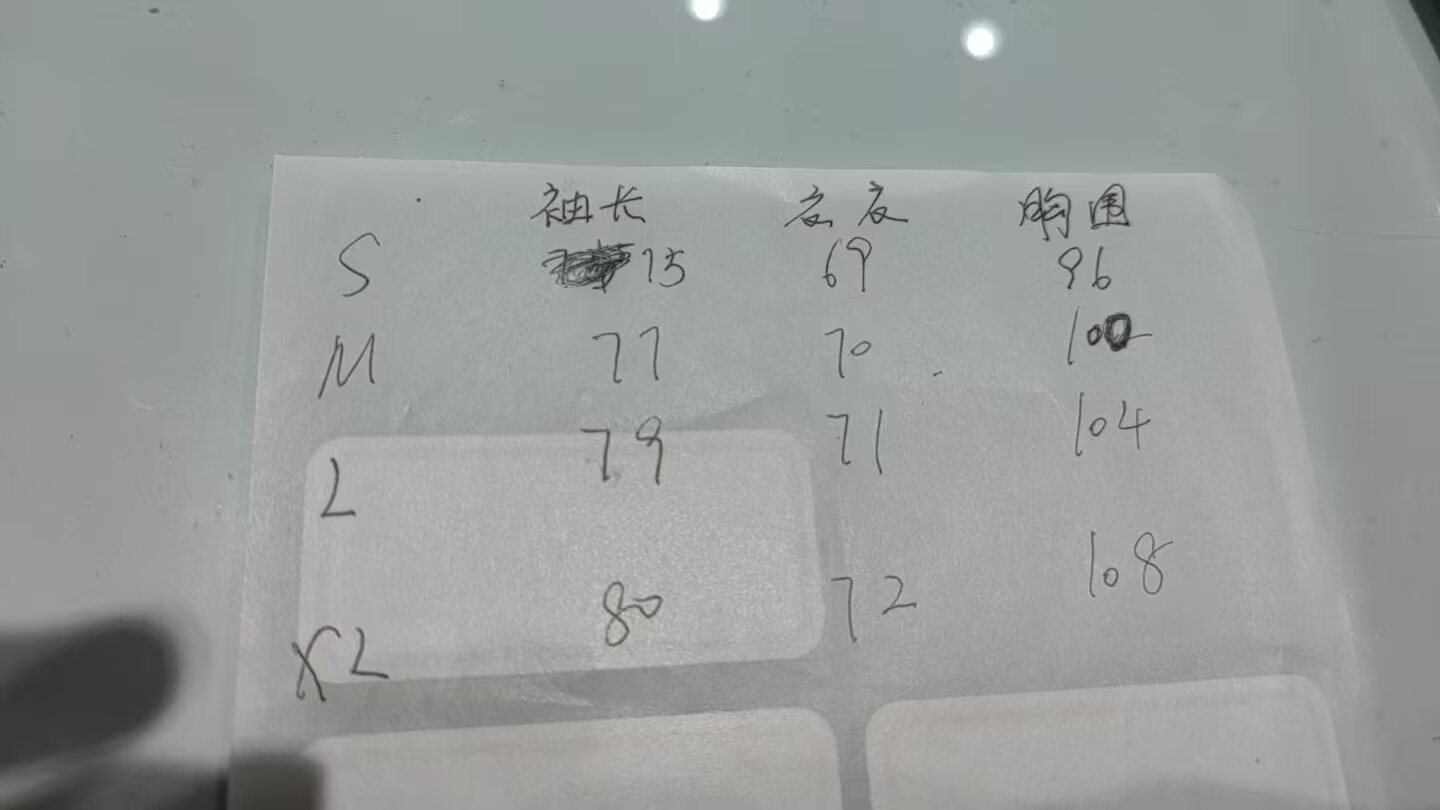 袖长 衣衣 胸围
S 75 69 96
M 77 70 100
L 79 71 104
XL 80 72 108